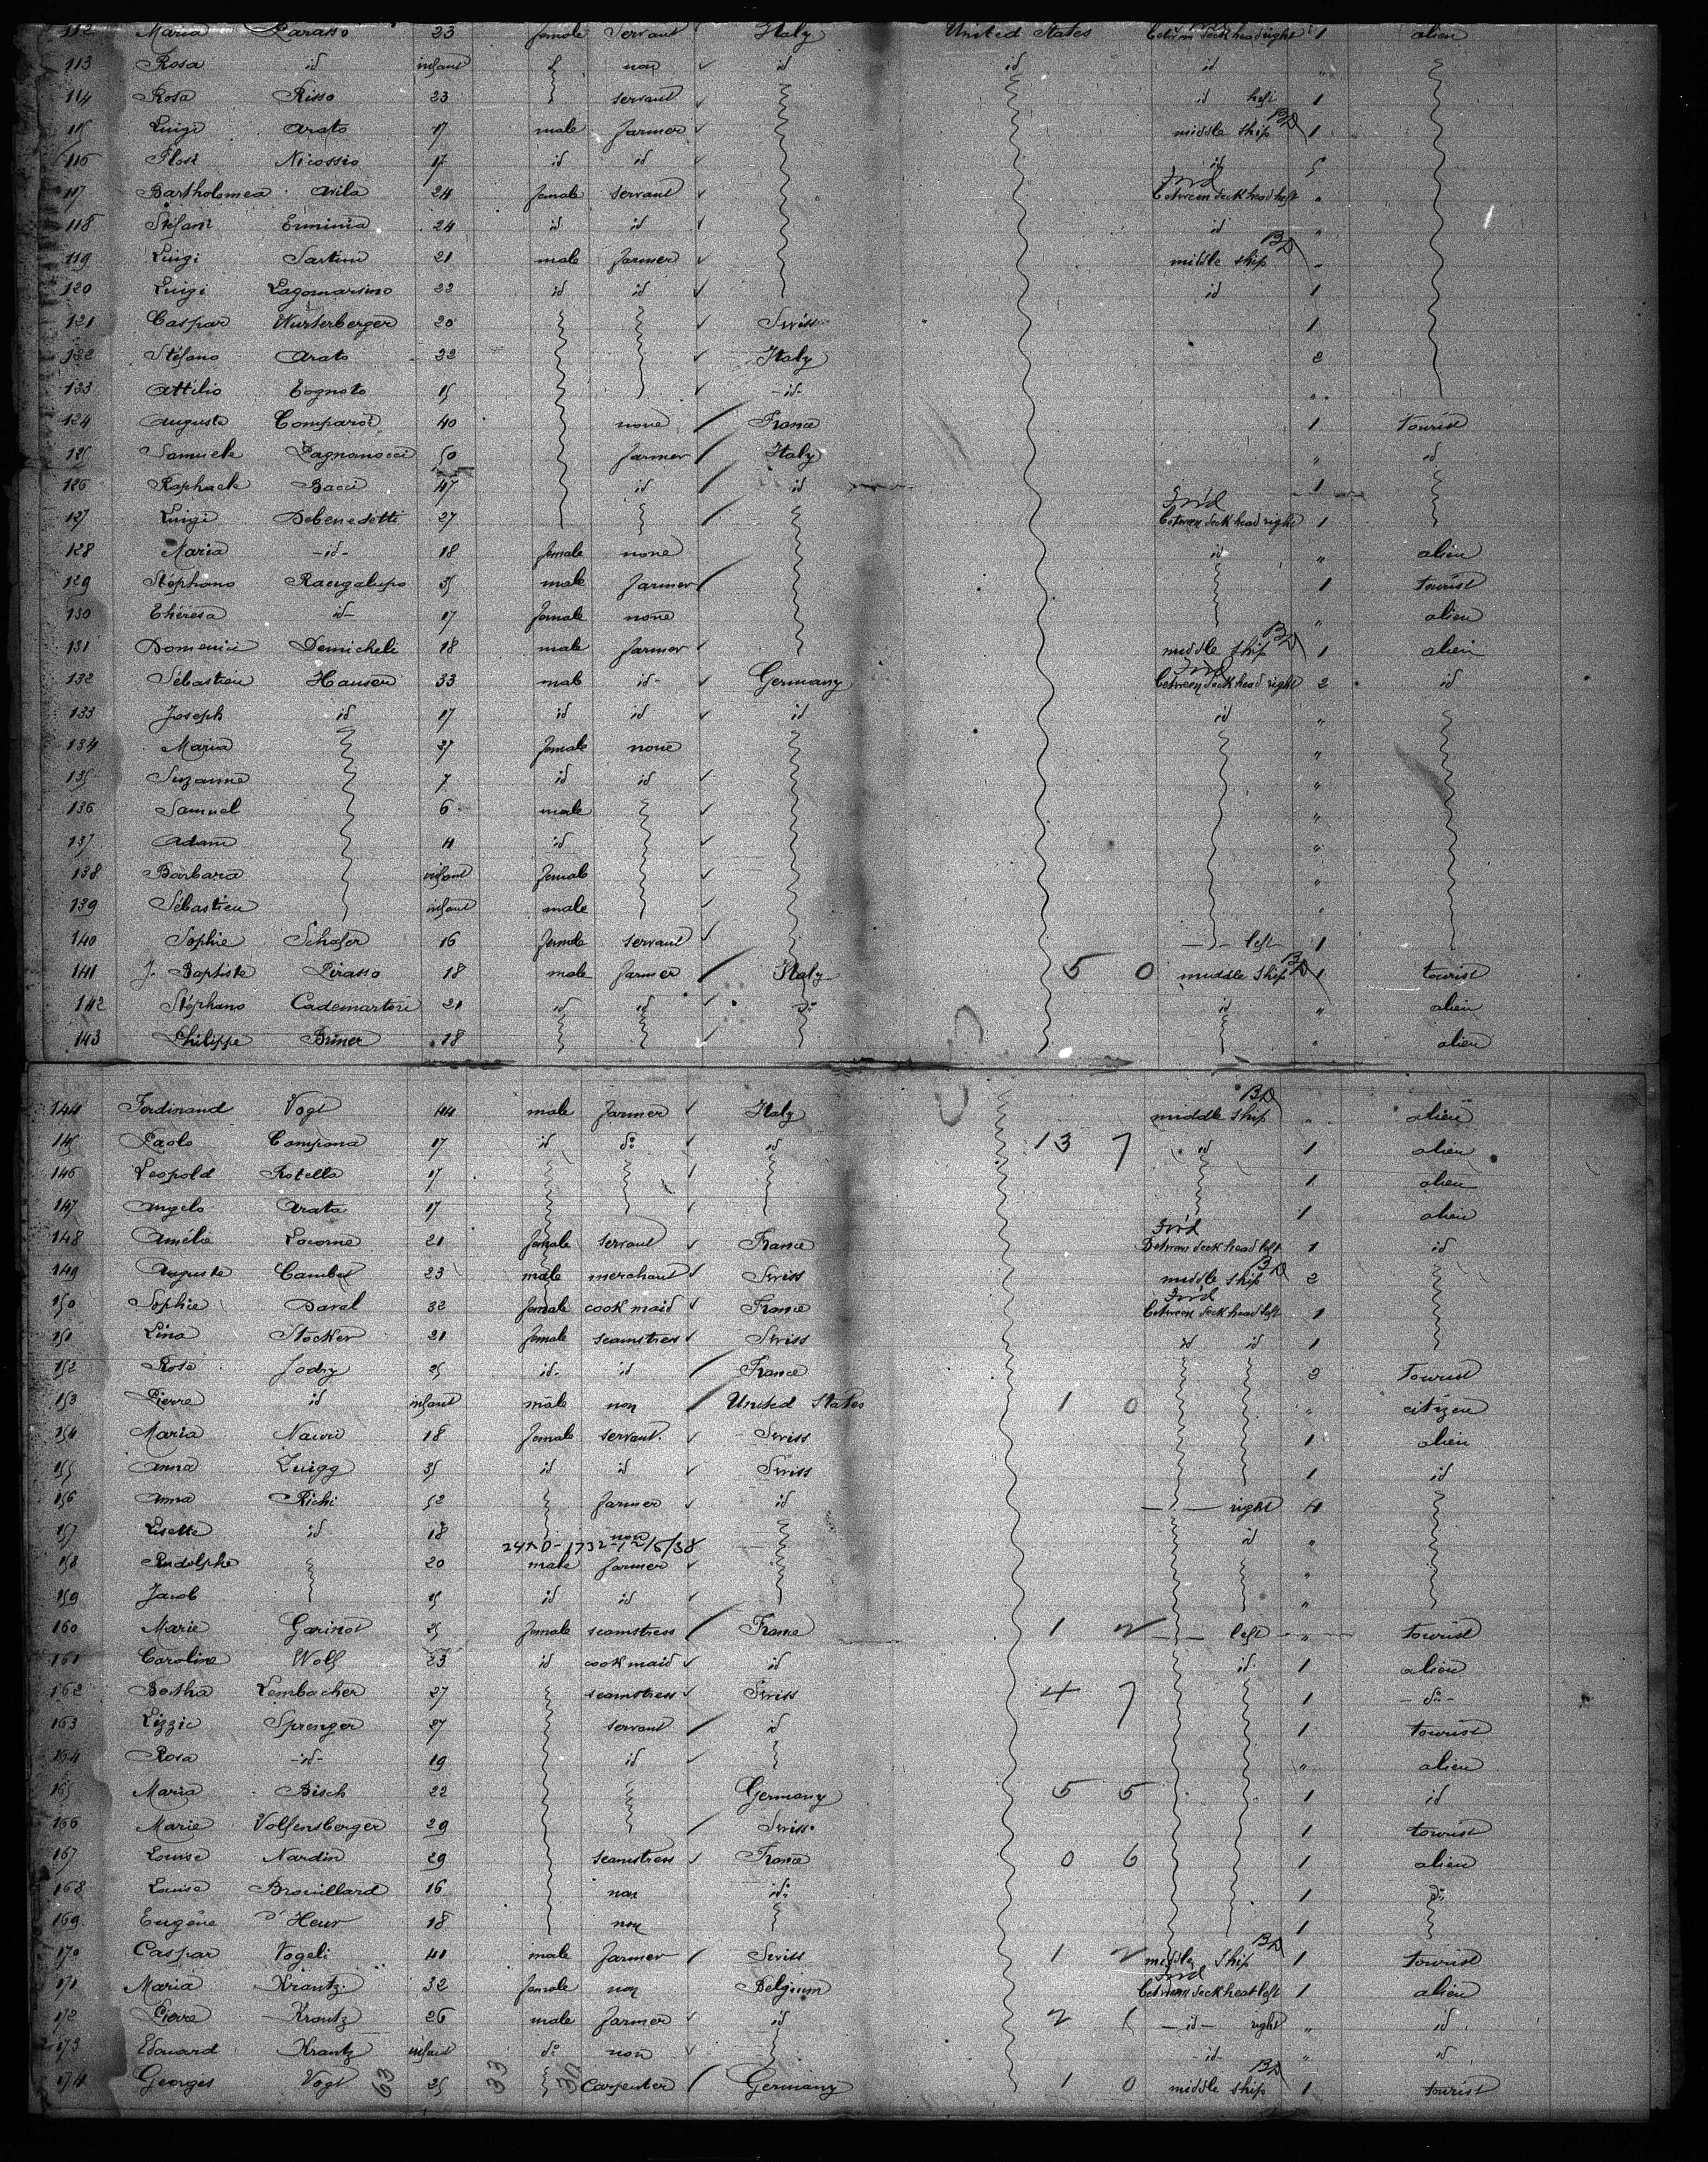 112 Maria Parasso 23 female Servant Italy United States between deck head right 1 alien
113 Rosa id infant non id id id "
114 Rosa Risso 23 servant id left 1
115 Luigi Arato 17 male farmer middle ship BD 1
116 Nicossio 17 id id id
117 Bartholomea Avila 24 female servant Fwd between deck head left "
118 Stefani Erminia 24 id id id "
119 Luigi Sartini 21 male farmer middle ship BD "
120 Luigi Lagomarsino 22 id id id 1
121 Caspar Wursterberger 20 Swiss 1
122 Stéfano Arato 32 Italy 2
123 Attilio Cognoto 15 -id- "
124 Auguste Comparot 40 none France 1 tourist
125 Samuele 50 farmer Italy " id
126 Raphaele Bacci 47 id id 1
127 Luigi Debenedetti 27 Fwd between deck head right 1
128 Maria -id- 18 female none id " alien
129 Stéphano Raengalupo 35 male farmer 1 tourist
130 Théresa id- 17 female none " alien
131 Domenici Demicheli 18 male farmer middle ship BD 1 alien
132 Sébastien Hausen 33 male id- Germany Fwd between deck head right 2 id
133 Joseph id 17 id id id id "
134 Maria 37 female none "
135 Suzanne 7 id id "
136 Samuel 6 male "
137 Adam 4 id "
138 Barbara infant female "
139 Sébastien infant male "
140 Sophie Schafer 16 female servant left 1
141 J. Baptiste Pirasso 18 male farmer Italy 5 0 middle ship BD 1 tourist
142 Stéphano Cademartori 21 id id do id " alien
143 Philippe Briner 18 " alien
144 Ferdinand Vogt 44 male farmer Italy middle ship BD " alien
145 Paolo Campona 17 id do id 13 7 id 1 alien
146 Leopold Rotello 17 1 alien
147 Angelo Arata 17 1 alien
148 Amélie Lacorne 21 female servant France Fwd Between deck head left 1 id
149 Auguste Cambet 23 male merchant Swiss middle ship BD 2
150 Sophie Daval 32 female cook maid France Fwd between deck head left 1
151 Lina Stocker 21 female seamstress Swiss id id 1
152 Rosa Jodry 25 id- id France 2 Tourist
153 Pierre id infant male non United States 1 0 " citizen
154 Maria Nauri 18 female servant Swiss 1 alien
155 Anna Zuigg 35 id id Swiss 1 id
156 Anna Richi 52 farmer id right 4
157 Lisette id 18 non id "
24 1732 /6/38
158 Rudolphe 20 male farmer "
159 Jacob 15 id id "
160 Marie Garinot 25 female seamstress France 1 2 left " tourist
161 Caroline Wolf 23 id cook maid id id 1 alien
162 Bertha Lembacher 27 seamstress Swiss 4 7 1 - do -
163 Lizzie Sprenger 27 servant id 1 tourist
164 Rosa -id- 19 id " alien
165 Maria Bisch 22 Germany 5 5 1 id
166 Marie Volfensberger 29 Swiss 1 tourist
167 Louise Nardin 29 seamstress France 0 6 1 alien
168 Louise Brouillard 16 non id 1 do
169 Eugène D'Heur 18 non 1
170 Caspar Vogeli 41 male farmer Swiss 1 2 middle ship BD 1 tourist
171 Maria Krantz 32 female non Belgium Fwd between deck head left 1 alien
172 Pierre Krantz 26 male farmer id 2 1 -id- right " id
173 Edouard Krantz infant do non -id- " id
174 Georges Vogt 25 Carpenter Germany 1 0 middle ship BD 1 tourist
63 33 30